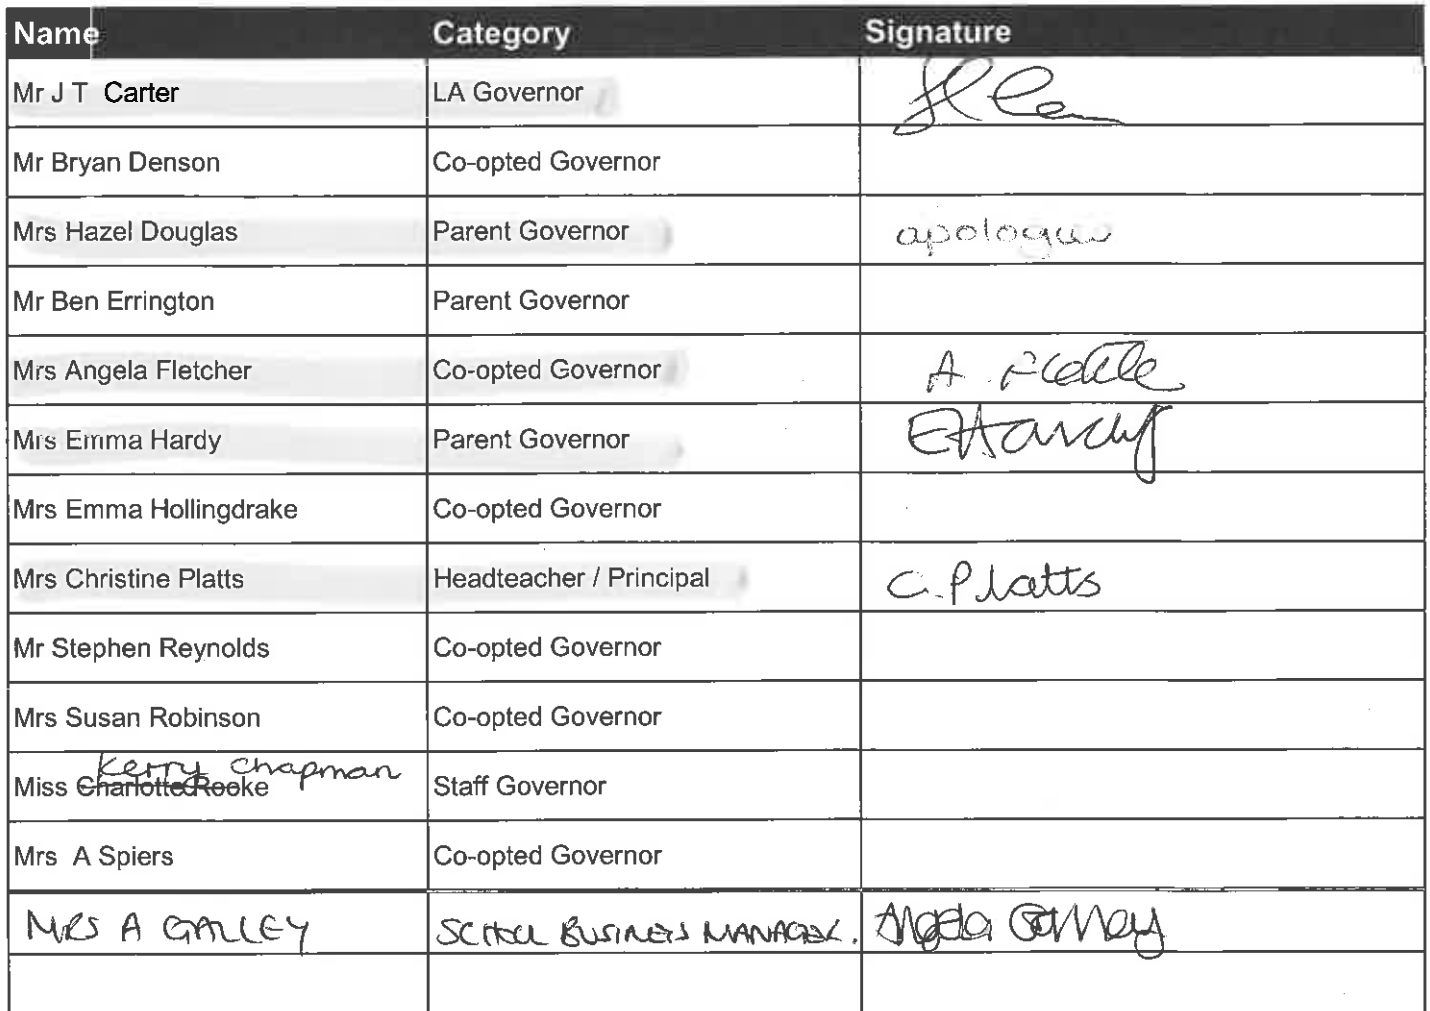 Name Category Signature
Mr J T Carter LA Governor
Mr Bryan Denson Co-opted Governor
Mrs Hazel Douglas Parent Governor apologies
Mr Ben Errington Parent Governor
Mrs Angela Fletcher Co-opted Governor A
Mrs Emma Hardy Parent Governor EHardy
Mrs Emma Hollingdrake Co-opted Governor
Mrs Christine Platts Headteacher / Principal C.Platts
Mr Stephen Reynolds Co-opted Governor
Mrs Susan Robinson Co-opted Governor
Kerry Chapman
Miss Charlotte Rooke Staff Governor
Mrs A Spiers Co-opted Governor
MRS A GALLEY SCHOOL BUSINESS MANAGER. Angela Galley